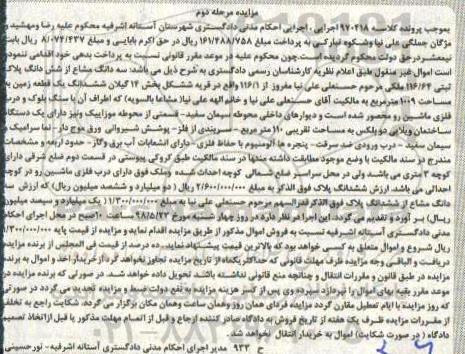 مزایده مرحله دوم
بموجب پرونده کلاسه ۹۷۰۴۱۸ اجرایی، اجرای احکام مدنی دادگستری شهرستان آستانه اشرفیه محکوم علیه رضا ومهشید و
مژگان جملگی علی نیا وشکوه تبارکی به پرداخت مبلغ ۱۶۱/۴۸۸/۷۵۸ ریال در حق اکرم بابایی و مبلغ ۸/۰۷۴/۴۳۷ ریال بابت
نیمعشر درحق دولت محکوم گردیده است.چون محکوم علیه در موعد مقرر قانونی نسبت به پرداخت بدهی خود اقدامی ننموده
است اموال غیر منقول طبق اعلام نظریه کارشناسان رسمی دادگستری به شرح ذیل می باشد: سه دانگ مشاع از شش دانگ پلاک
ثبتی ۱۱۶/۶۴ ملکی مرحوم حسنعلی علی نیا مفروز از ۱۱۶/۱ واقع در قریه ششکل بخش ۱۴ گیلان ششدانگ یک قطعه زمین به
مساحت ۱۰۰۹ مترمربع به مالکیت آقای حسنعلی علی نیا و خانم الهه علی نیاز مشاعا بالسویه) که اطراف آن با سنگ بلوک و درب
فلزی ماشین رو محصور شده است و دیوارهای داخلی محوطه سیمان سفید- قسمتی از محوطه موزاییک ونیز دارای یک دستگاه
ساختمان ویلایی دوبلکس به مساحت تقریبی ۱۱۰ متر مربع -سربندی از فلز- پوشش شیروانی ورق موج دار- نما سرامیک و
سیمان سفید - درب ورودی ضد سرقت - پنجره ها آلومنیوم با حفاظ فلزی - دارای انشعابات آب برق وگاز - حدود اربعه و مشخصات
مندرج در سند مالکیت با وضع موجود مطابقت داشته منتها در سند مالکیت طبق کروکی پیوستی در قسمت دوم ضلع شرقی دارای
کوچه ۳ متری می باشند ولی در محل سراسر ضلع شمالی کوچه احداث شده وملک فوق دارای درب فلزی ماشین رو در کوچه
احداثی می باشد. ارزش ششدانگ پلاک فوق الذکر به مبلغ ۲/۶۰۰/۰۰۰/۰۰۰ ریال ( دو میلیارد و ششصد میلیون ریال)که ارزش سه
دانگ مشاع از ششدانگ پلاک فوق الذکر قدرالسهم مرحوم حسنعلی علی نیا به مبلغ ۱/۳۰۰/۰۰۰/۰۰۰( یک میلیارد و سیصد میلیون
ریال) بر آورد و تقدیم می گردد. این اجرا در نظر دارد در روز چهار شنبه مورخ ۹۸/۵/۲۳ ساعت ۱۰صبح در محل اجرای احکام
مدنی دادگستری آستانه اشرفیه نسبت به فروش اموال مذکور از طریق مزایده اقدام نماید و مزایده از قیمت پایه ۱/۳۰۰/۰۰۰/۰۰۰
ریال شروع و اموال متعلق به کسی خواهد بود که بالاترین قیمت پیشنهاد نماید. ده درصد از قیمت فی المجلس از برنده مزایده
دریافت و الباقی وجه مزایده ظرف مهلت قانونی که حداکثر یکماه از تاریخ مزایده تجاوز نخواهد کرد از خریدار اخذ و اموال به برنده
مزایده در طبق قانون و مقررات انتقال و چنانچه منع قانونی نداشته باشد، تحویل داده خواهد شد. در صورتی که برنده مزایده در
موعد مقرر بقیه بهای اموال را نپردازد سپرده وی پس از کسر هزینه مزایده به نفع دولت ضبط و مزایده تجدید می گردد در صورتی
که روز مزایده با ایام تعطیل مقارن گردد مزایده فردای همان روز وهمان ساعت وهمان مکان برگزار می گردد. شکایت راجع به تخلف
از مقررات مزایده ظرف یک هفته از تاریخ فروش به دادگاه صادر کننده ارجاع و قبل از اتمام مهلت مذکور یا قبل ازاتخاذ تصمیم
دادگاه ( در صورت شکایت) اموال به خریدار انتقال نخواهد شد.
ح ۹۳۳ مدیر اجرای احکام مدنی دادگستری آستانه اشرفیه-نورحسینی